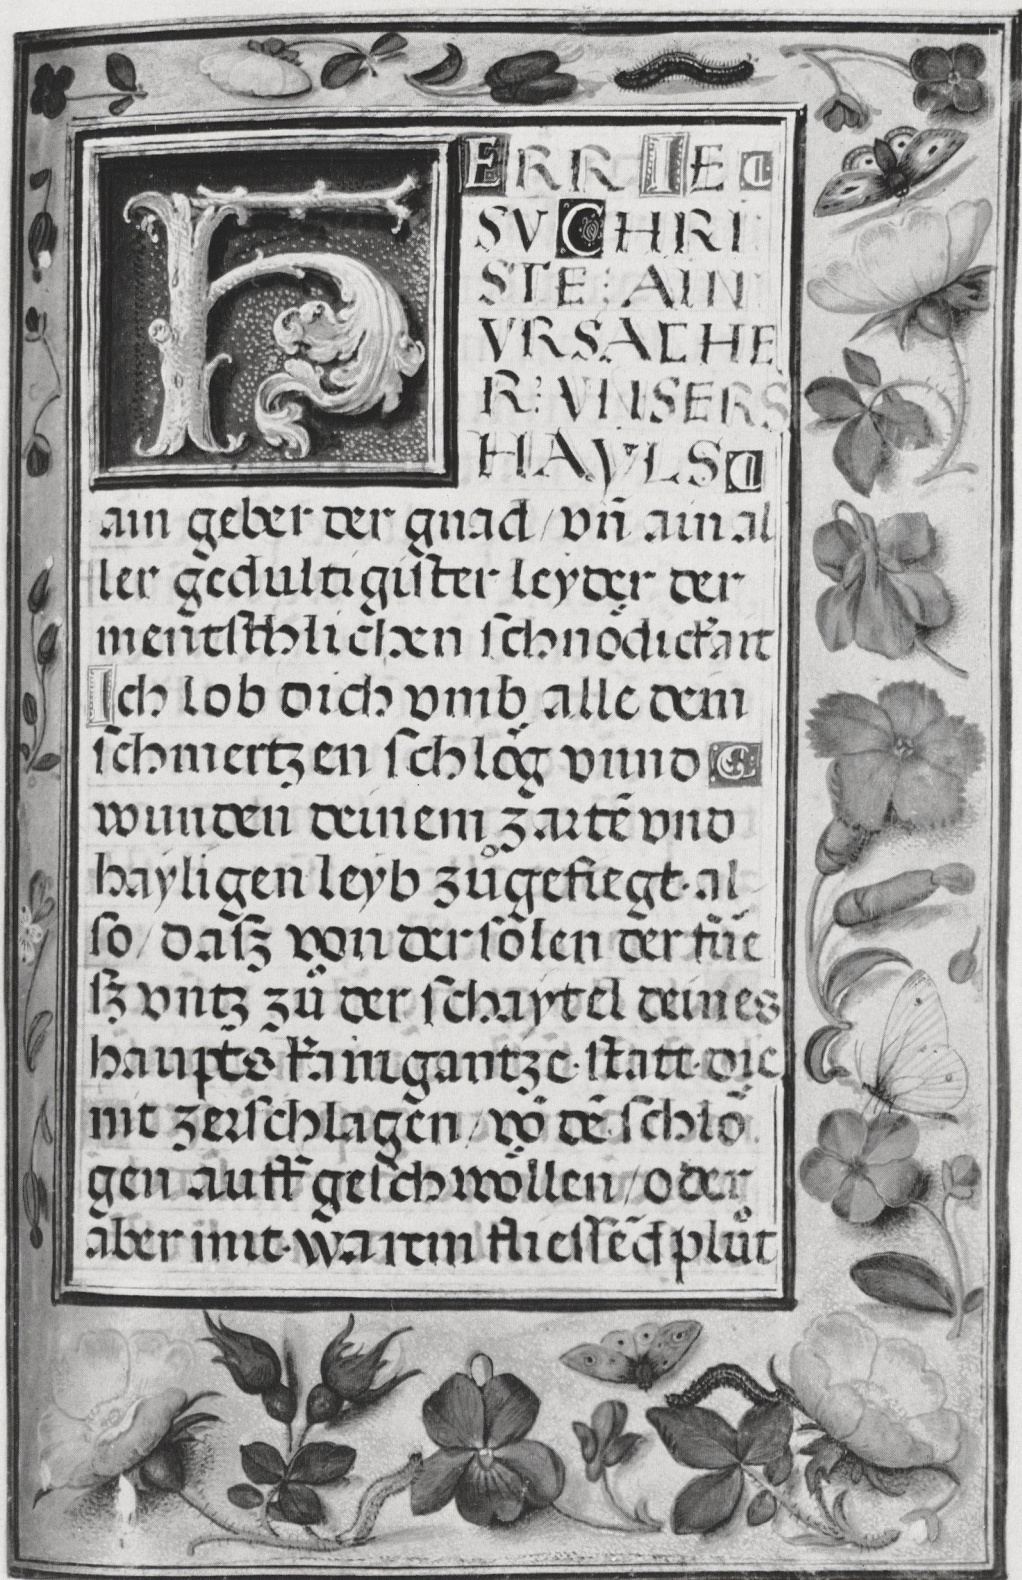 HERR IE
SV CHRI
STE: AIN
VRSACHE
R: VNSERS
HAYLS
ain geber der gnad / vn̄ ain al
ler gedultigister leyder der
mentschlichen schnödickait
Ich lob dich vmb alle dein
schmertzen schlög vnnd
wunden deinem zartē vnd
hayligen leyb zůgefiegt· al
so / dasz von der solen der fúe
sz vntz zů der schaytel deines
haupts kain gantze· statt· die
nit zerschlagen / vō dē· schlö
gen auff geschwollen / oder
aber mit· warm fliessēd plůt